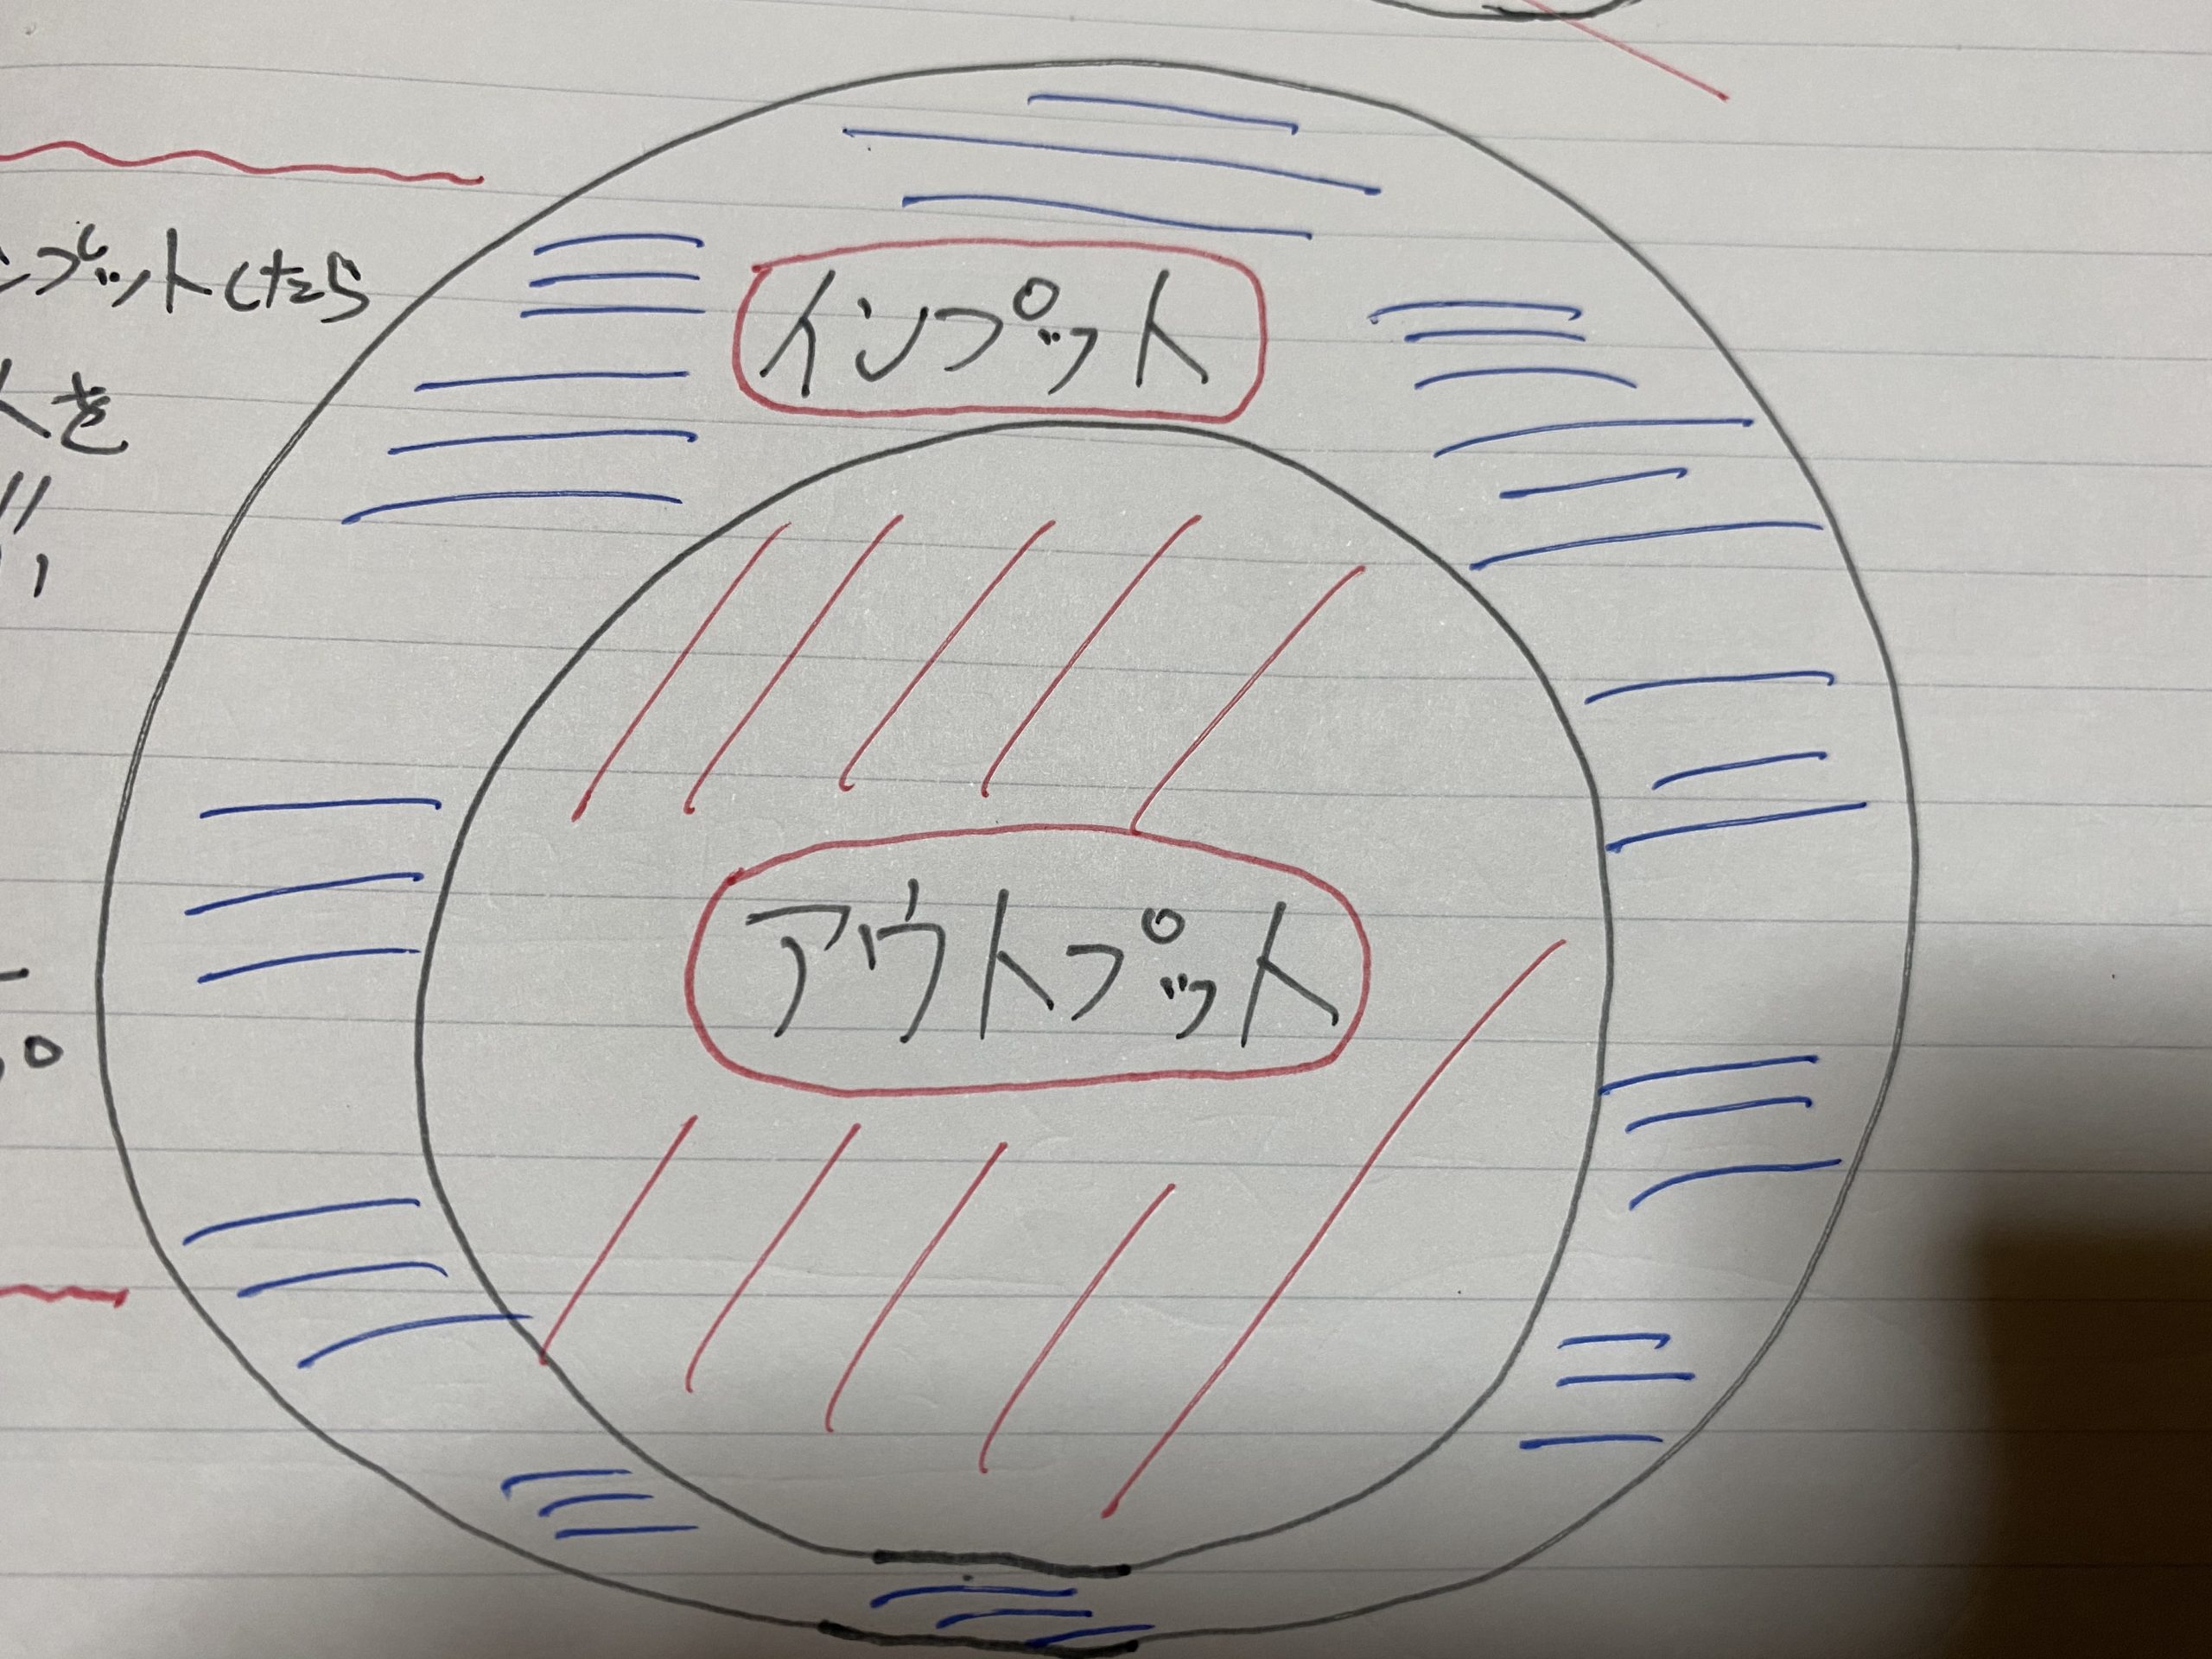 ンプットしたら
トを
インプット
アウトプット